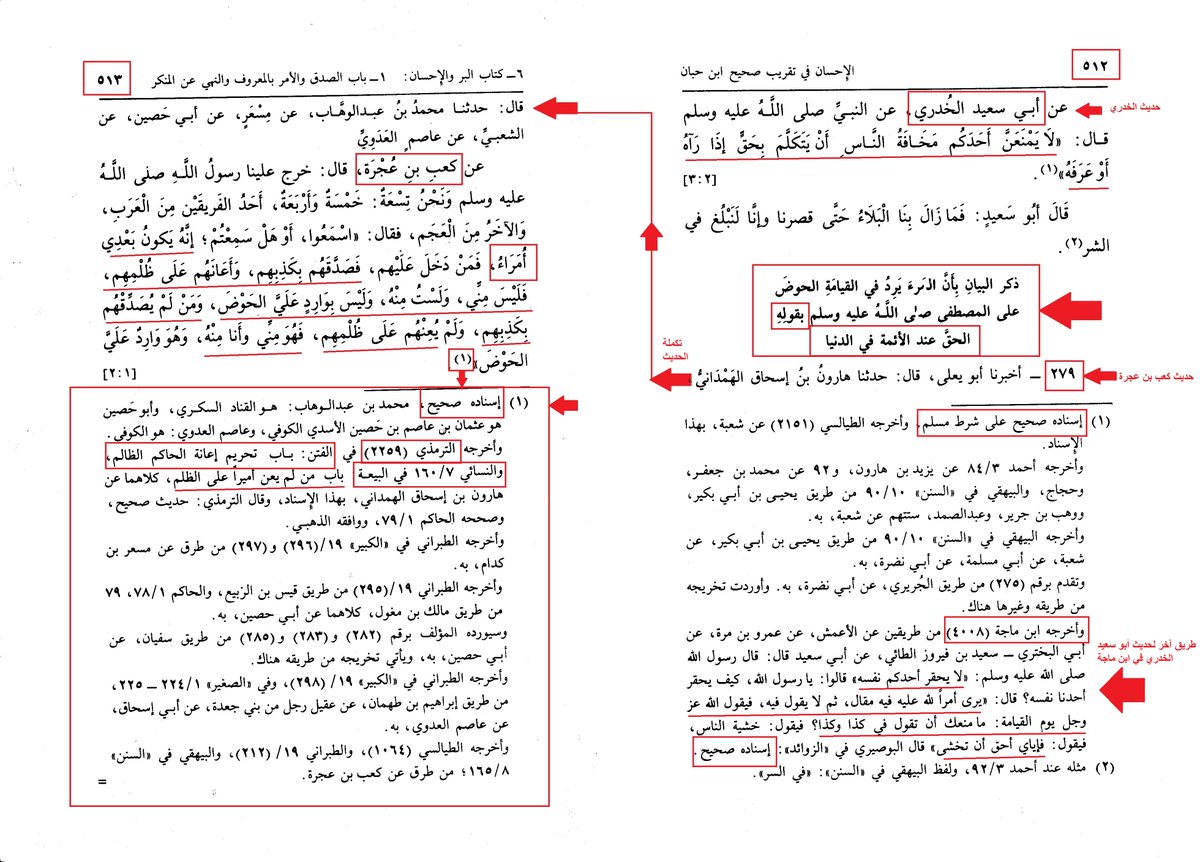 ٥١٢
الإحسان في تقريب صحيح ابن حبان
عن أبي سعيد الخُدري، عن النبيِّ صلى اللَّهُ عليه وسلم
قـال: «لَا يَمْنَعَنَّ أَحَدَكُم مَخَافَةُ النَّاسِ أَنْ يَتَكَلَّمَ بِحَقٍّ إِذَا رَآهُ
أَوْ عَرَفَهُ»(١).
[٣:٢]
قَالَ أَبُو سَعِيدٍ: فَمَا زَالَ بِنَا الْبَلَاءُ حَتَّى قصرنا وإنَّا لَنَبْلُغ في
الشر(٢).
ذكر البيانِ بِأَنَّ المرءَ يَرِدُ في القيامَةِ الحوضَ
على المصطفى صلى اللَّهُ عليه وسلم بقولِهِ
الحقَّ عند الأئمة في الدنيا
٢٧٩ ــ أخبرنا أبو يعلى، قال: حدثنا هارونُ بنُ إسحاق الهَمْدَانيُّ،
(١) إسناده صحيح على شرط مسلم. وأخرجه الطيالسي (٢١٥١) عن شعبة، بهذا
الإسناد.
وأخرجه أحمد ٨٤/٣ عن يزيد بن هارون، و٩٢ عن محمد بن جعفر،
وحجاج، والبيهقي في «السنن» ٩٠/١٠ من طريق يحيى بن أبي بكير،
ووهب بن جرير، وعبدالصمد، ستتهم عن شعبة، به.
وأخرجه البيهقي في «السنن» ٩٠/١٠ من طريق يحيى بن أبي بكير، عن
شعبة، عن أبي مسلمة، عن أبي نضرة، به.
وتقدم برقم (٢٧٥) من طريق الجُريري، عن أبي نضرة، به. وأوردت تخريجه
من طريقه وغيرها هناك.
وأخرجه ابن ماجة (٤٠٠٨) من طريقين عن الأعمش، عن عمرو بن مرة، عن
أبي البختري ــ سعيد بن فيروز الطائي، عن أبي سعيد قال: قال رسول الله
صلى الله عليه وسلم: «لا يحقر أحدكم نفسه» قالوا: يا رسول الله، كيف يحقر
أحدنا نفسه؟ قال: «يرى أمراً لله عليه فيه مقال، ثم لا يقول فيه، فيقول الله عز
وجل يوم القيامة: ما منعك أن تقول في كذا وكذا؟ فيقول: خشية الناس،
فيقول: فإياي أحق أن تخشى» قال البوصيري في «الزوائد»: إسناده صحيح.
(٢) مثله عند أحمد ٩٢/٣، ولفظ البيهقي في «السنن»: «في السر».
حديث الخدري
حديث كعب بن عجرة
طريق آخر لحديث أبو سعيد
الخدري في ابن ماجة
تكملة
الحديث
٦ــ كتاب البر والإحسان: ١ــ باب الصدق والأمر بالمعروف والنهي عن المنكر
٥١٣
قال: حدثنا محمدُ بنُ عبدالوهَّاب، عن مِسْعَرٍ، عن أبي حَصين، عن
الشعبيِّ، عن عاصمٍ العَدَوِيِّ
عن كعبِ بنِ عُجْرَة، قال: خرج علينا رسولُ اللَّهِ صلى اللَّهُ
عليه وسلم وَنَحْنُ تِسْعَةٌ: خَمْسَةٌ وَأَرْبَعَةٌ، أَحَدُ الفَرِيقَيْنِ مِنَ الْعَرَبِ،
وَالآخَرُ مِنَ الْعَجَمِ، فقال: «اسْمَعُوا، أَوْ هَلْ سَمِعْتُمْ؛ إِنَّهُ يَكونُ بَعْدِي
أُمَرَاءُ، فَمَنْ دَخَلَ عَلَيْهِم، فَصَدَّقَهُم بِكَذِبِهِم، وَأَعَانَهُم عَلَى ظُلْمِهِم،
فَلَيْسَ مِنِّي، وَلَسْتُ مِنْهُ، وَلَيْسَ بِوَارِدٍ عَلَيَّ الحَوْضَ، وَمَنْ لَمْ يُصَدِّقْهُم
بِكَذِبِهِم، وَلَمْ يُعِنْهُم عَلَى ظُلْمِهِم، فَهُوَ مِنِّي وَأَنَا مِنْهُ، وَهُوَ وَارِدٌ عَلَيَّ
الحَوْضَ»(١)
[٢:١]
(١) إسناده صحيح، محمد بن عبدالوهاب: هو القناد السكري، وأبو حَصين
هو عثمان بن عاصم بن حَصين الأسدي الكوفي، وعاصم العدوي: هو الكوفي.
وأخرجه الترمذي (٢٢٥٩) في الفتن: باب تحريم إعانة الحاكم الظالم،
والنسائي ١٦٠/٧ في البيعة باب من لم يعن أميراً على الظلم، كلاهما عن
هارون بن إسحاق الهمداني، بهذا الإسناد، وقال الترمذي: حديث صحيح،
وصححه الحاكم ٧٩/١، ووافقه الذهبي.
وأخرجه الطبراني في «الكبير» ١٩/(٢٩٦) و(٢٩٧) من طرق عن مسعر بن
كدام، به.
وأخرجه الطبراني ١٩/(٢٩٥) من طريق قيس بن الرَّبيع، والحاكم ٧٨/١، ٧٩
من طريق مالك بن مغول، كلاهما عن أبي حصين، به.
وسيورده المؤلف برقم (٢٨٢) و(٢٨٣) و(٢٨٥) من طريق سفيان، عن
أبي حصين، به، ويأتي تخريجه من طريقه هناك.
وأخرجه الطبراني في «الكبير» ١٩/(٢٩٨)، وفي «الصغير» ٢٢٤/١ ــ ٢٢٥،
من طريق إبراهيم بن طهمان، عن عقيل رجل من بني جعدة، عن أبي إسحاق،
عن عاصم العدوي، به.
وأخرجه الطيالسي (١٠٦٤)، والطبراني ١٩/(٢١٢)، والبيهقي في «السنن»
١٦٥/٨؛ من طرق عن كعب بن عجرة.
=